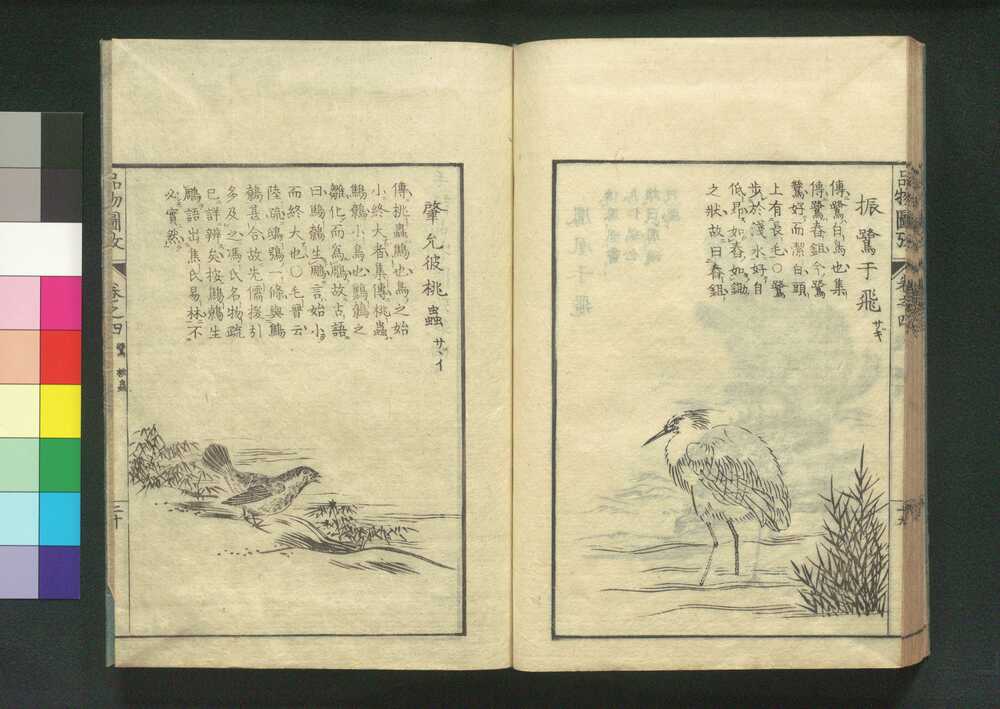 品物圖攷
卷之四
十九
振鷺于飛 サギ
傳鷺白鳥也集
傳鷺舂鉏今鷺
鷥好而潔白頭
上有長毛○鷺
步於淺水好自
低昂如舂如鋤
之狀故曰舂鉏
肇允彼桃蟲 サヾイ
傳桃蟲鷦也鳥之始
小終大者集傳桃蟲
鷦鷯小鳥也鷦鷯之
雛化而爲鵰故古語
曰鷦鷯生鵰言始小
而終大也○毛晉云
陸疏鴟鴞一條與鷦
鷯甚合故先儒援引
多及之馮氏名物疏
已詳辨矣按鷦鷯生
鵰語出焦氏易林不
必實然
品物圖攷
卷之四
鷺 桃蟲
二十